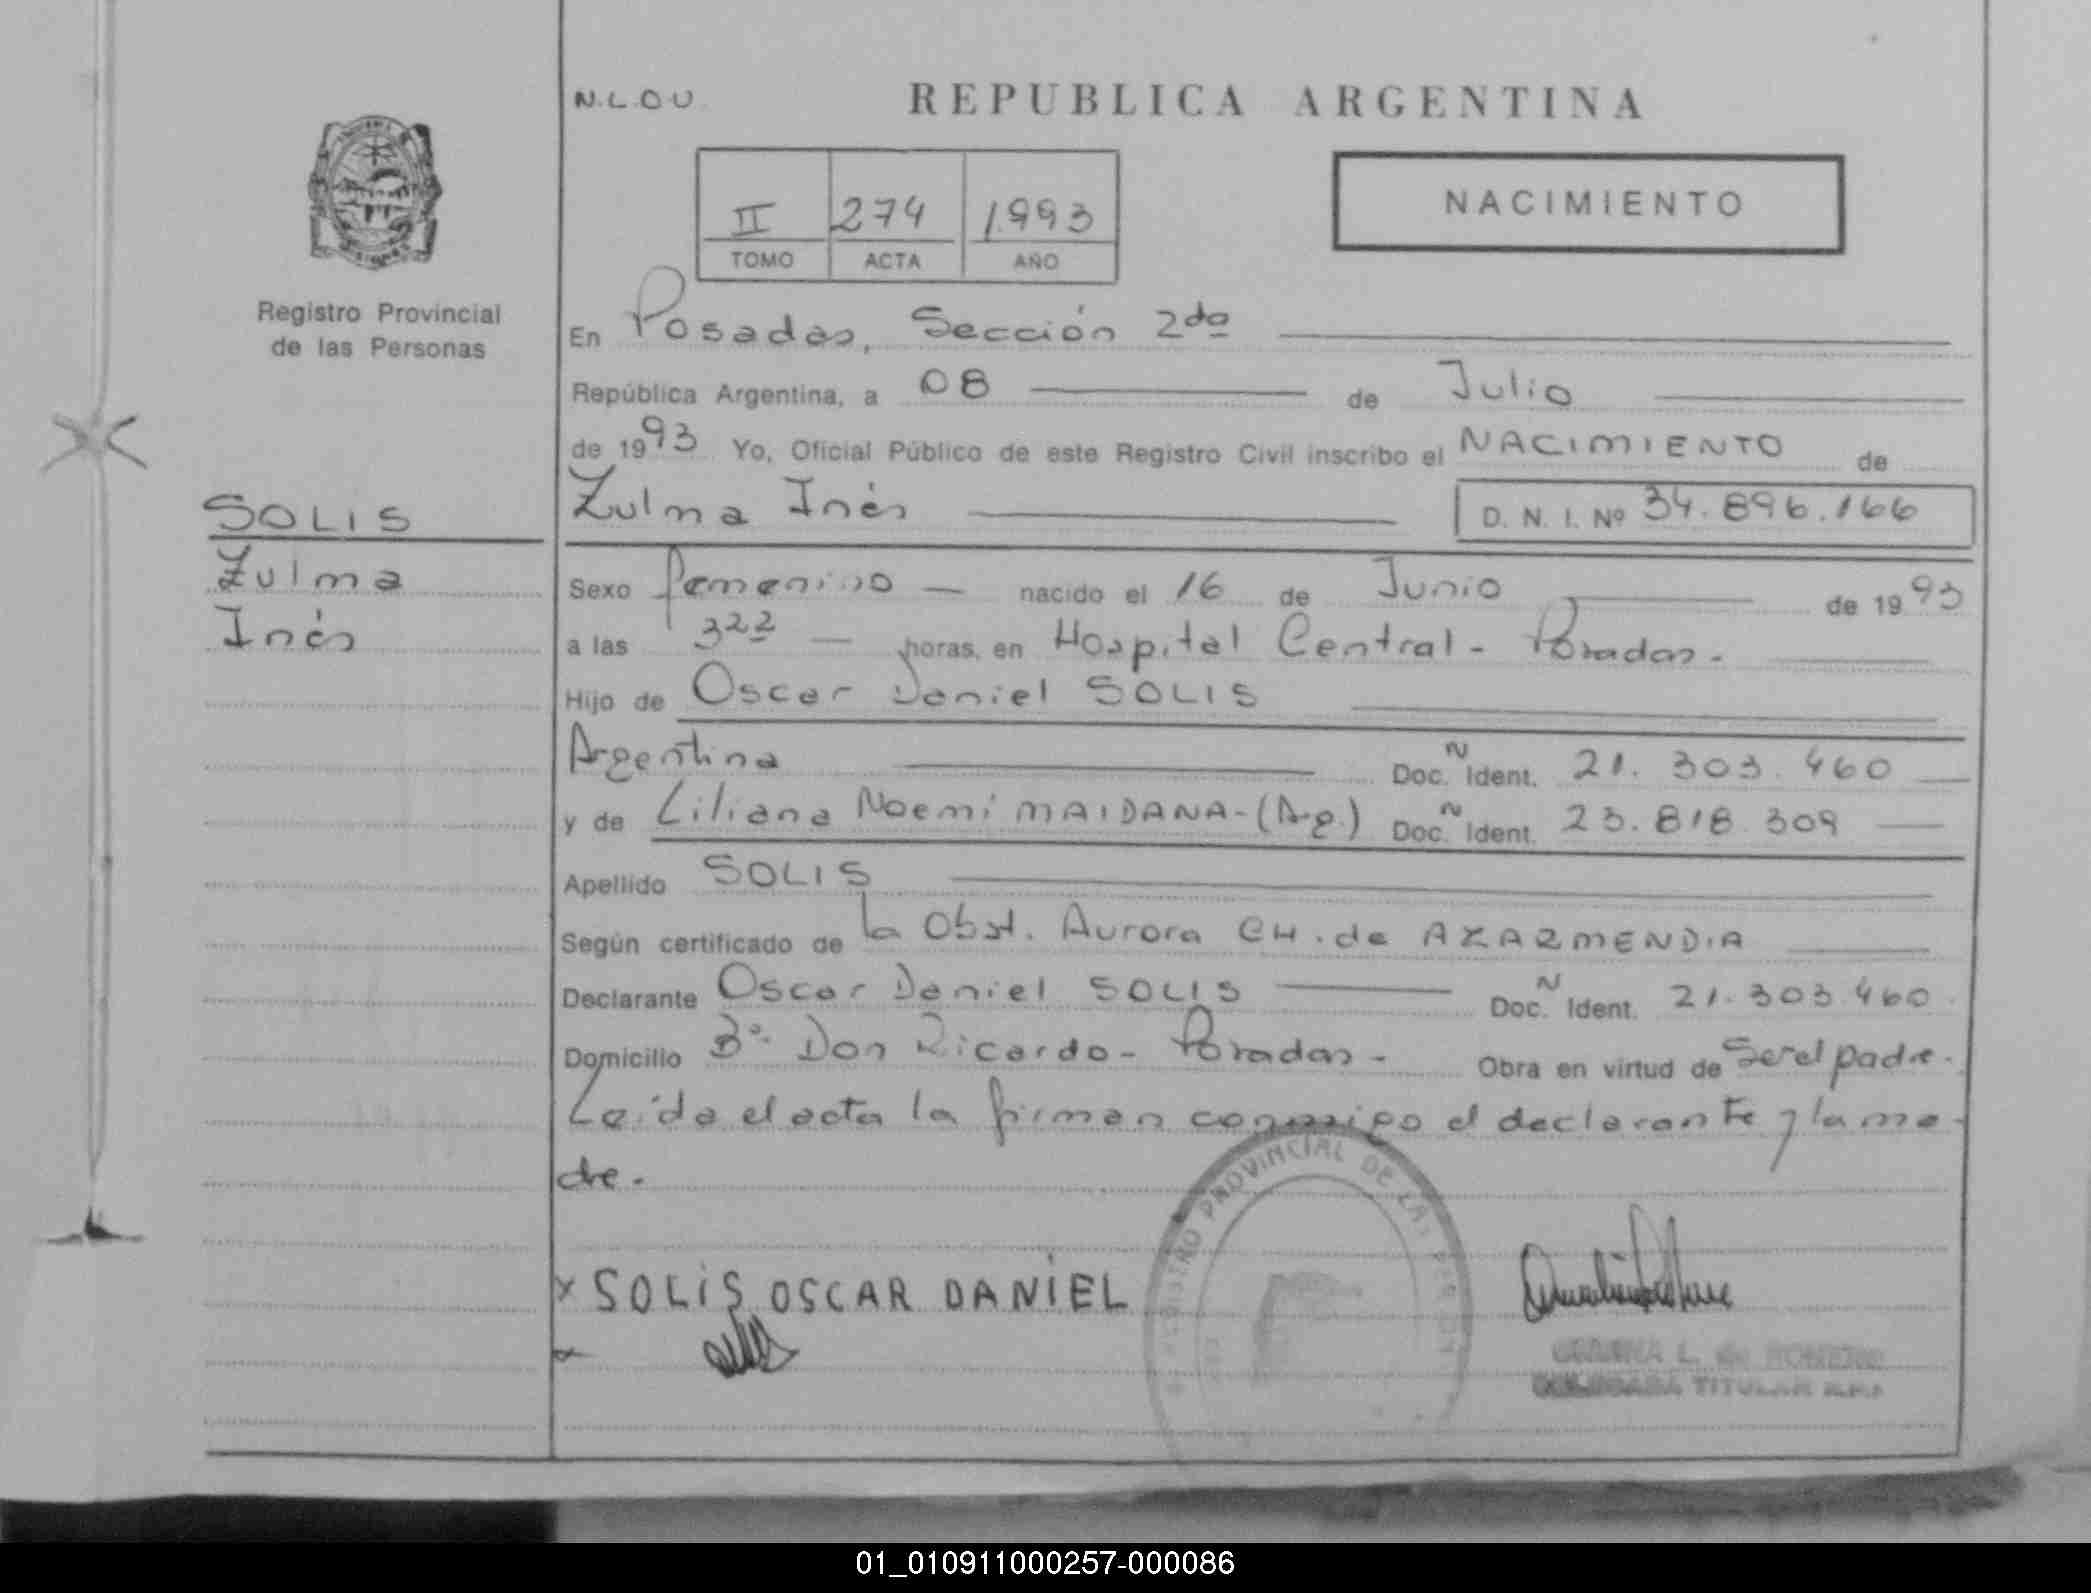 N.L.O.U.
REPUBLICA ARGENTINA
II 274 1993
TOMO ACTA AÑO
NACIMIENTO
Registro Provincial
de las Personas
En Posadas, Sección 2da
República Argentina, a 08 de Julio
de 1993 Yo, Oficial Público de este Registro Civil inscribo el NACIMIENTO de
Zulma Inés D. N. I. Nº 34.896.166
SOLIS
Zulma
Inés
Sexo femenino nacido el 16 de Junio de 1993
a las 3 22 horas, en Hospital Central - Posadas.
Hijo de Oscar Daniel SOLIS
Argentina Doc. Ñ Ident. 21.303.460
y de Liliana Noemí MAIDANA - (Arg.) Doc. Ñ Ident. 23.818.309
Apellido SOLIS
Según certificado de la Obst. Aurora CH. de AZARMENDIA
Declarante Oscar Daniel SOLIS Doc. N Ident. 21.303.460.
Domicilio Bº Don Ricardo - Posadas - Obra en virtud de Ser el padre.
Leída el acta la firman conmigo el declarante y la ma-
dre.
REGISTRO PROVINCIAL DE LAS PERSONAS
x SOLIS OSCAR DANIEL
L. de ROMERO
TITULAR
01_010911000257-000086